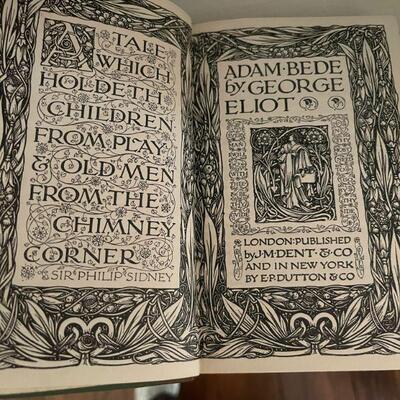 A TALE
WHICH
HOLDETH
CHILDREN
FROM PLAY
& OLD MEN
FROM THE
CHIMNEY
CORNER
SIR PHILIP SIDNEY
ADAM·BEDE
by GEORGE
ELIOT
LONDON:PUBLISHED
by J·M·DENT·&·CO
AND IN NEW YORK
BY E·P·DUTTON & CO